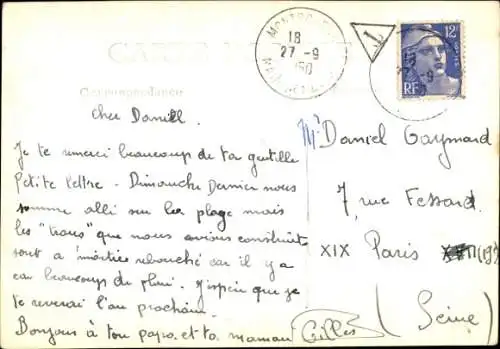 CARTE
Correspondance
18
27-9
12F
POSTES
RF
cher Daniell.
Je te remerci beaucoup de ta gentille
Petite lettre - Dimanche Dernier nous
somme allé sur la plage mais
les "trous" que nous avions construit
sont a moitié rebouché car il y a
eu beaucoup de pluie. J'espère que je
te reverai l'an prochain.
Bonjour à ton papa et ta maman Gilles
Mr Daniel Gaymard
7, rue Fessard
XIX Paris (19)
(Seine)